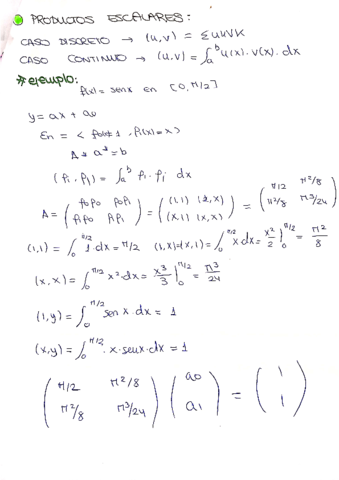 PRODUCTOS ESCALARES:
CASO DISCRETO → (u,v) = Σ uk vk
CASO CONTINUO → (u,v) = ∫ₐᵇ u(x)·v(x)·dx
*ejemplo:
f(x) = senx en [0, π/2]
y = ax + a₀
En = < p₀(x)=1, p₁(x)=x >
A * a* = b
(pᵢ, pⱼ) = ∫ₐᵇ pᵢ · pⱼ dx
A = (p₀p₀ p₀p₁ / p₁p₀ p₁p₁) = ((1,1) (1,x) / (x,1) (x,x)) = (π/2 π²/8 / π²/8 π³/24)
(1,1) = ∫₀^π/2 1·dx = π/2 (1,x)=(x,1) = ∫₀^π/2 x dx = x²/2 |₀^π/2 = π²/8
(x,x) = ∫₀^π/2 x²·dx = x³/3 |₀^π/2 = π³/24
(1,y) = ∫₀^π/2 sen x·dx = 1
(x,y) = ∫₀^π/2 x·senx·dx = 1
(π/2 π²/8 / π²/8 π³/24) (a₀ / a₁) = (1 / 1)